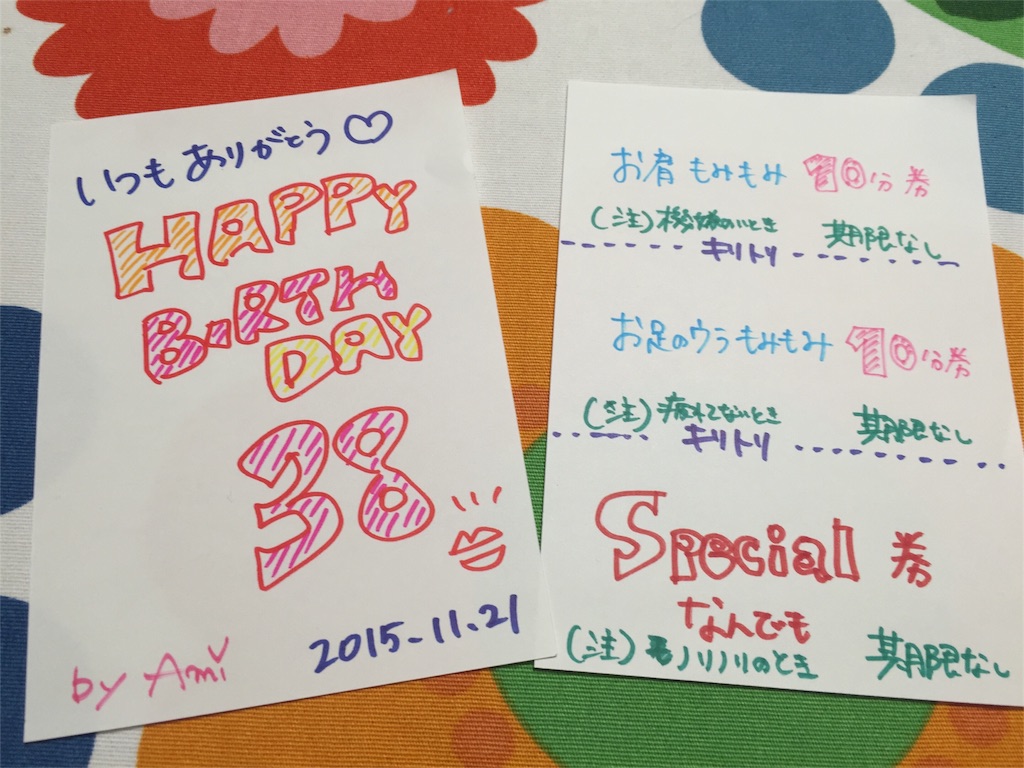 いつもありがとう♡
HAPPY
BiRTH
DAY
38
by Ami
2015-11.21
お肩もみもみ 10分券
(注)機嫌のいいとき 期限なし
キリトリ
お足のウラもみもみ 10分券
(注)疲れてないとき 期限なし
キリトリ
Special 券
なんでも
(注)ノリノリのとき 期限なし